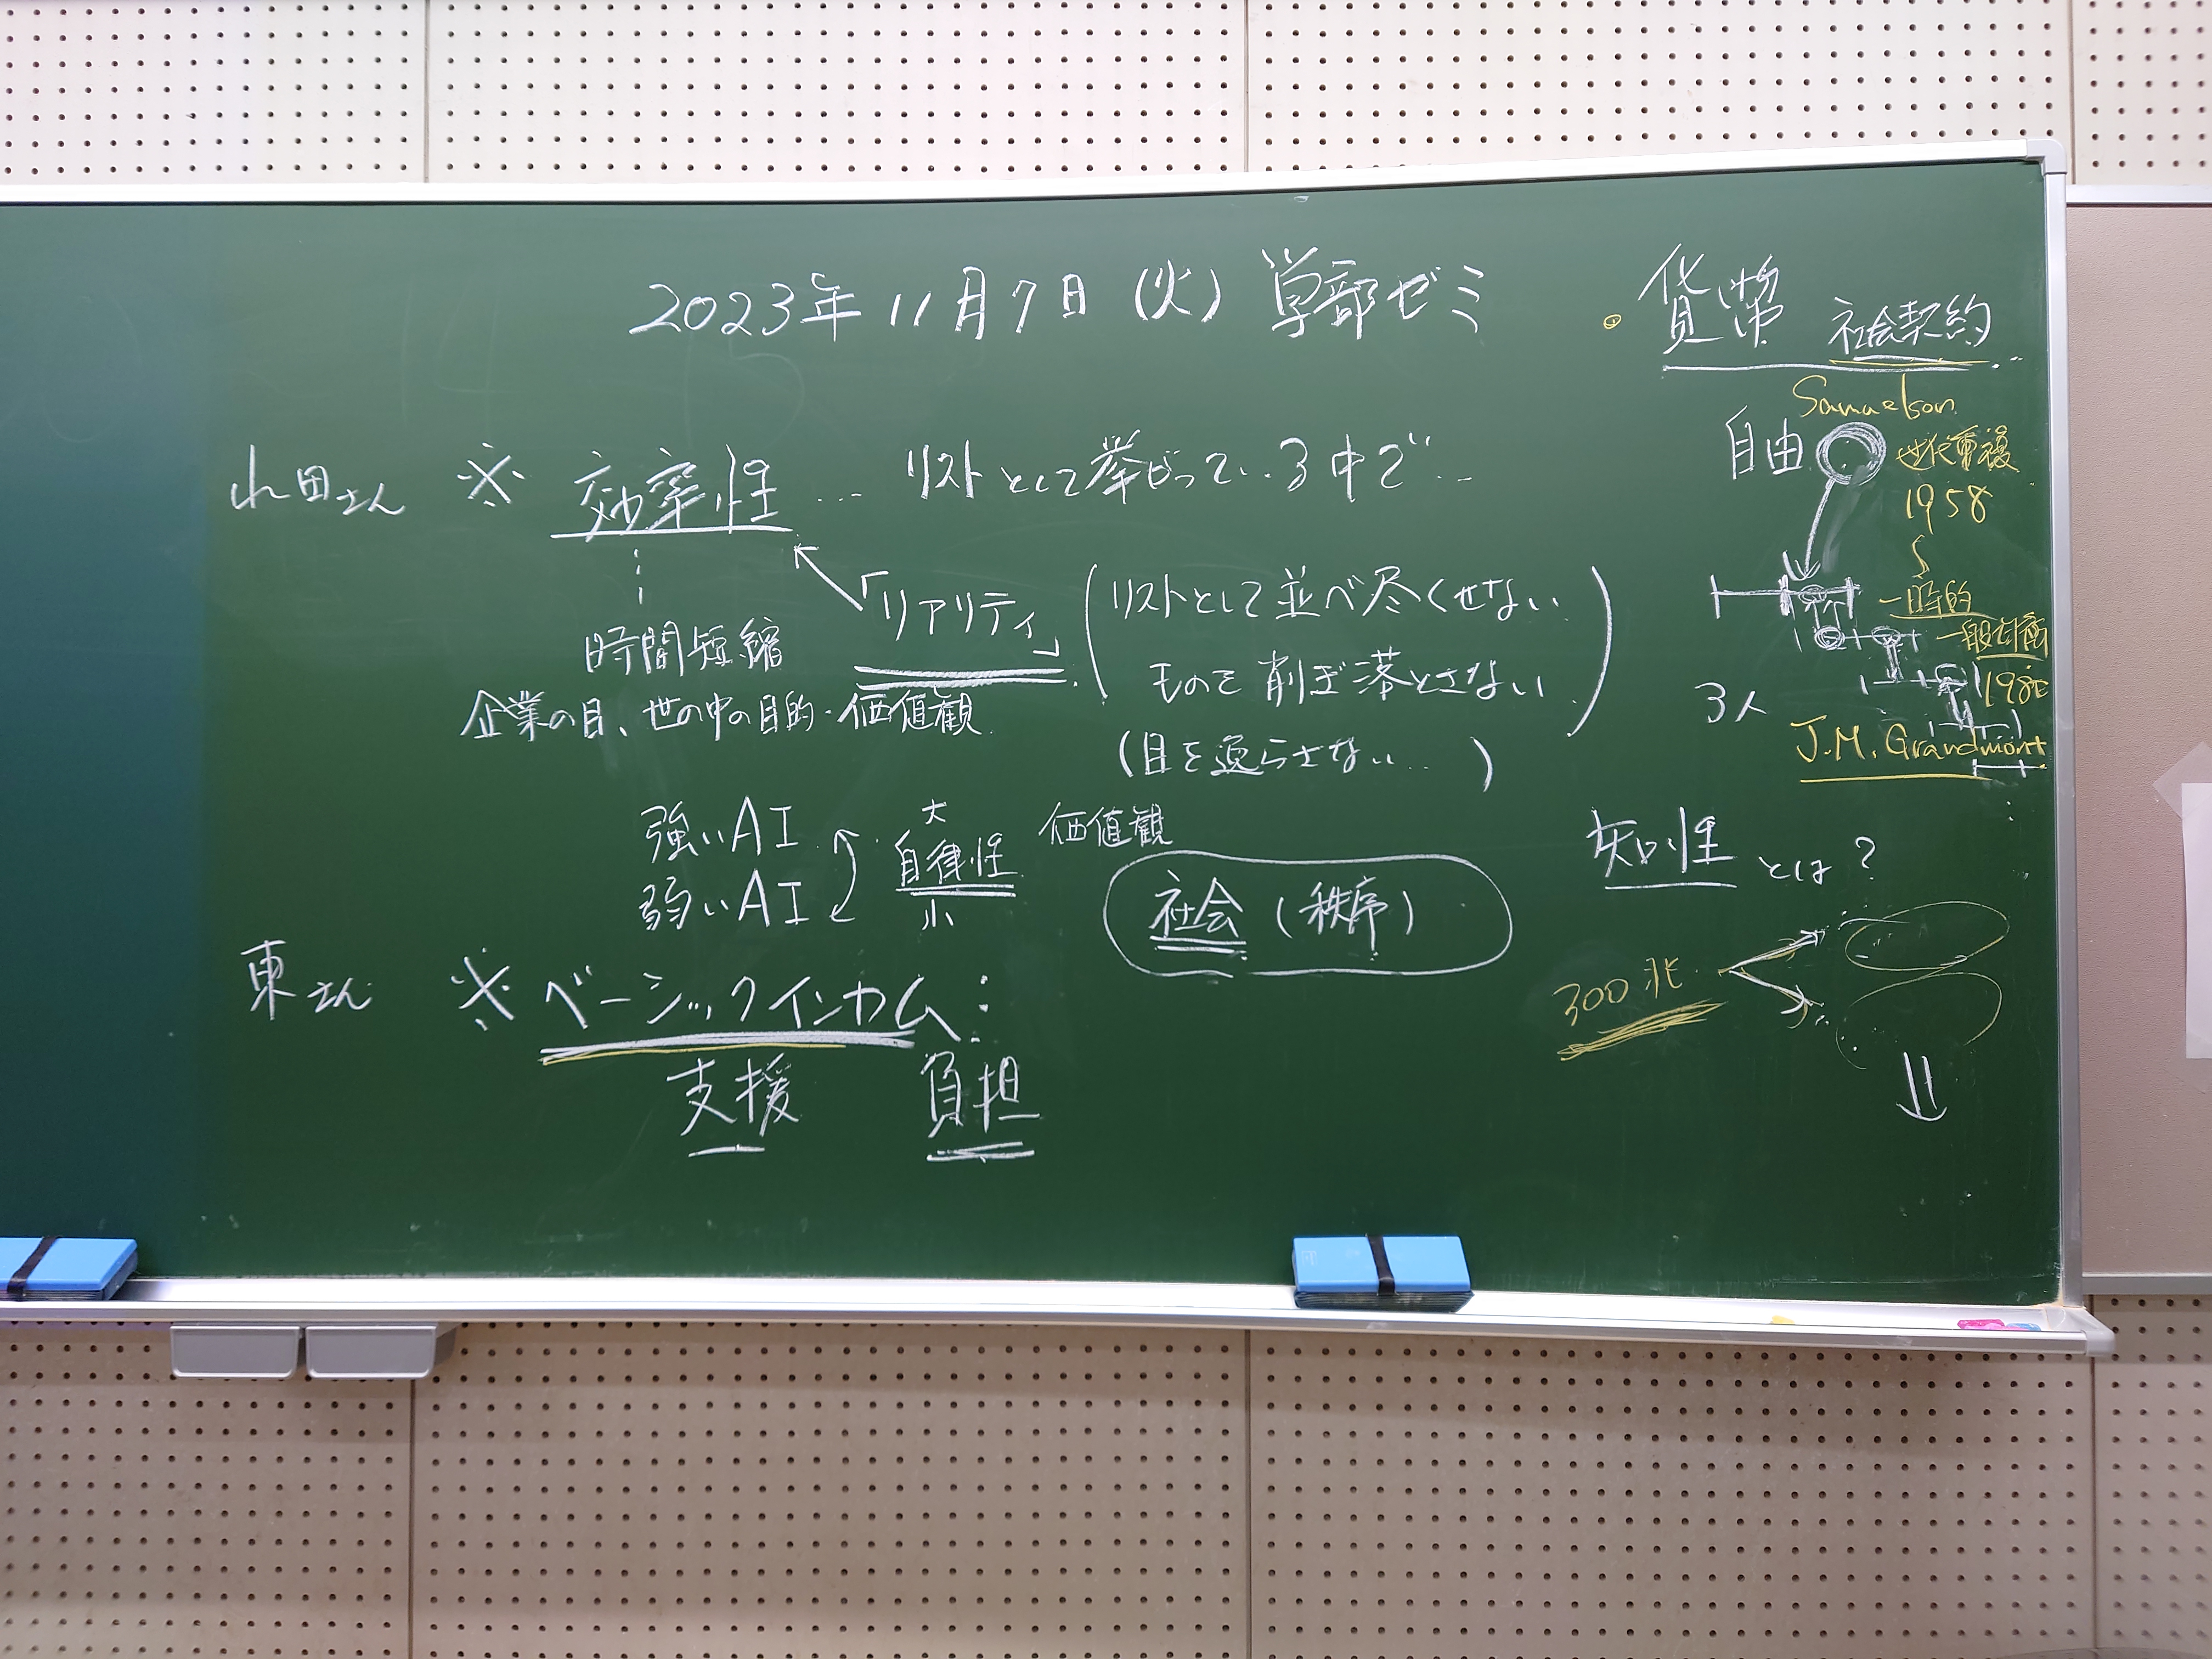 2023年11月7日(火) 学部ゼミ
山田さん ※ 効率性 … リストとして挙がっている中で…
「リアリティ」 (リストとして並べ尽くせない
ものを削ぎ落とさない)
(目を逸らさない…)
時間短縮
企業の目、世の中の目的・価値観
強いAI
弱いAI
大
自律性
小
価値観
社会(秩序)
東さん ※ ベーシックインカム:
支援 負担
・貨幣 社会契約
Samuelson
自由
世代重複
1958
一時的
一般均衡
3人
J.M. Grandmont
知性とは?
300兆